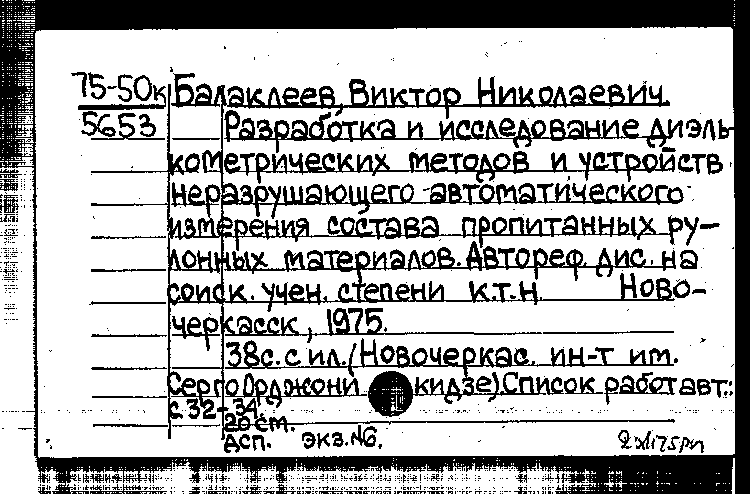 75-50к Балаклеев, Виктор Николаевич.
5653 Разработка и исследование диэль-
кометрических методов и устройств
неразрушающего автоматического
измерения состава пропитанных ру-
лонных материалов. Автореф. дис. на
соиск. учен. степени к.т.н. Ново-
черкасск, 1975.
38с. с ил. (Новочеркас. ин-т им.
Серго Орджоникидзе) Список работ авт.:
с 32-34.
20 см.
Асп. экз. №6.